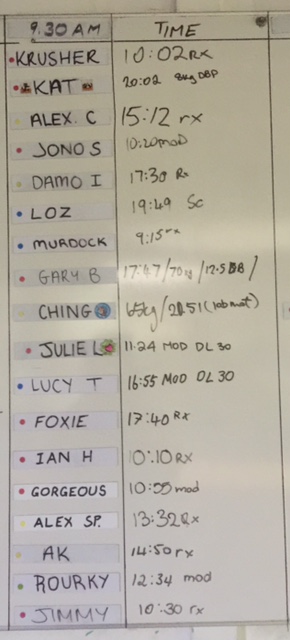 9.30 AM TIME
KRUSHER 10:02 RX
KAT 20:02 8kg DBP
ALEX. C 15:12 rx
JONO S 10:20 mod
DAMO I 17:30 Rx
LOZ 19:49 Sc
MURDOCK 9:15 rx
GARY B 17:47/70kg/12.5 DB/
CHING 65kg/
JULIE L 11:24 MOD DL 30
LUCY T 16:55 MOD DL 30
FOXIE 17:40 RX
IAN H 10:10 RX
GORGEOUS 10:55 mod
ALEX SP. 13:32 Rx
AK 14:50 rx
ROURKY 12:34 mod
JIMMY 10:30 rx